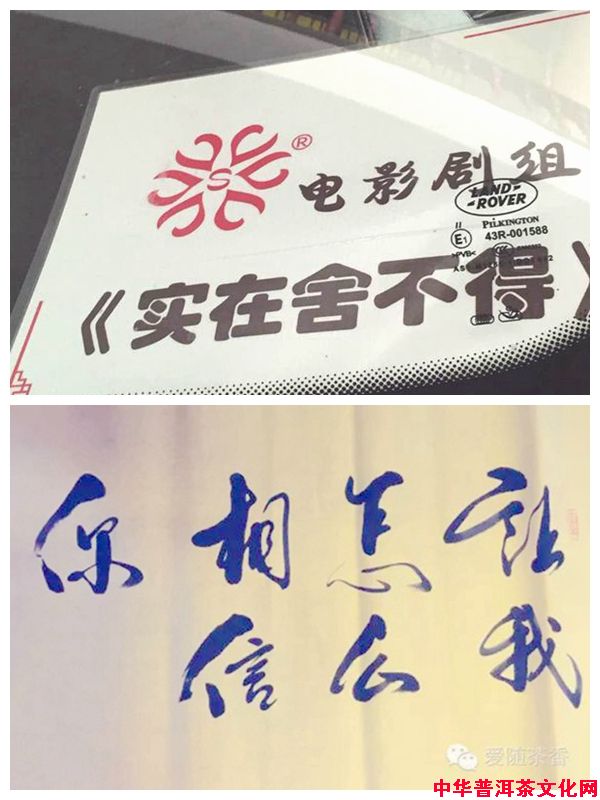 ®
电影剧组
LAND-
-ROVER
PILKINGTON
II
E1
43R-001588
>PVB<
《实在舍不得》
让我
怎么
相信
你
爱随茶香
中华普洱茶文化网